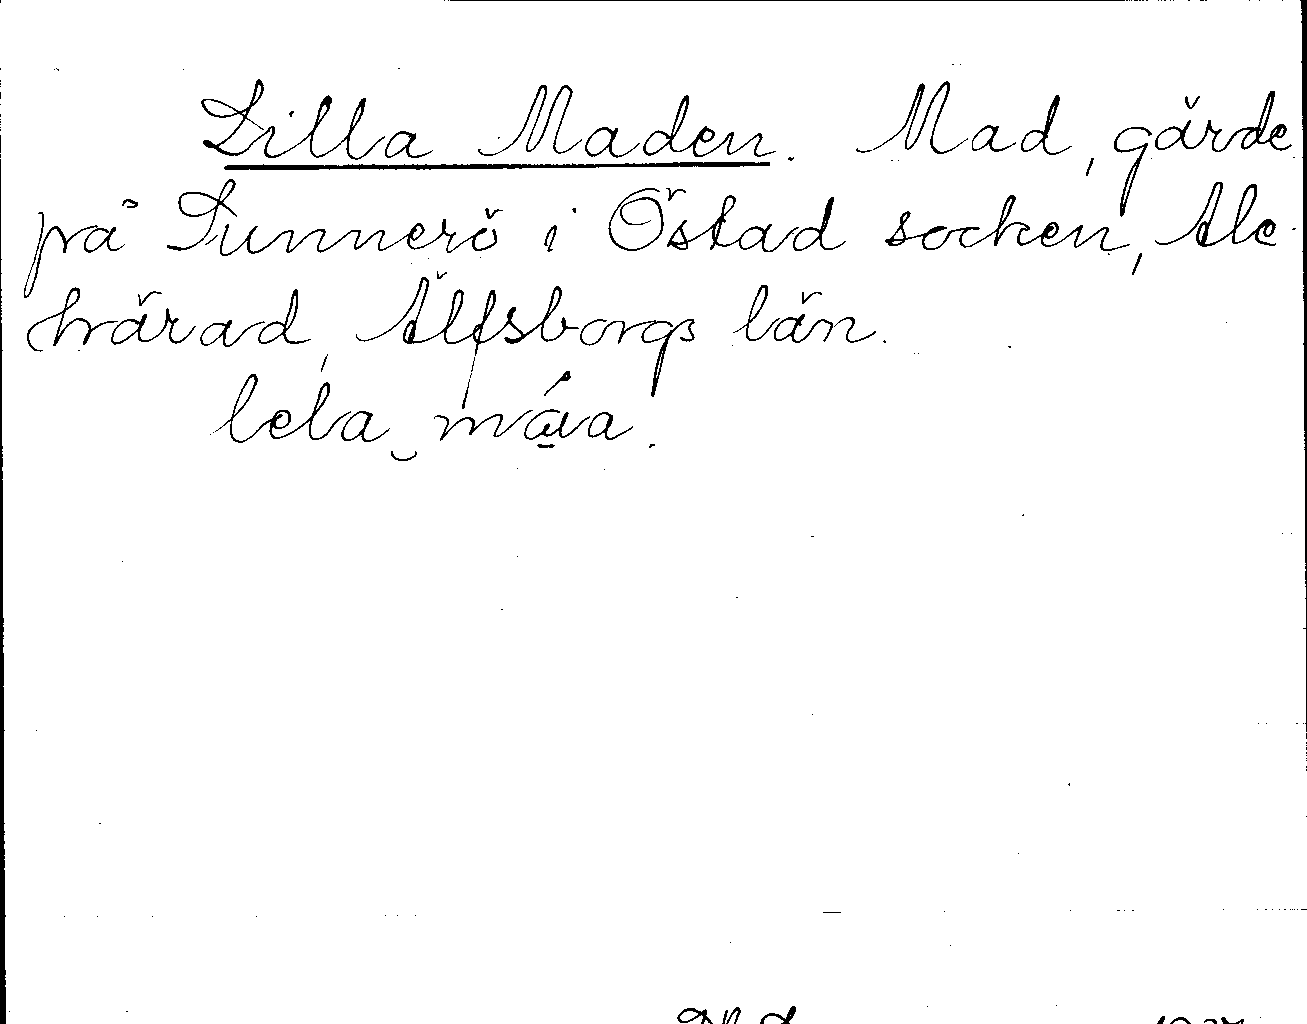 Lilla Maden. Mad, gärde
på Tunnerö i Östad socken, Ale
härad, Älfsborgs län.
lela má̱a.